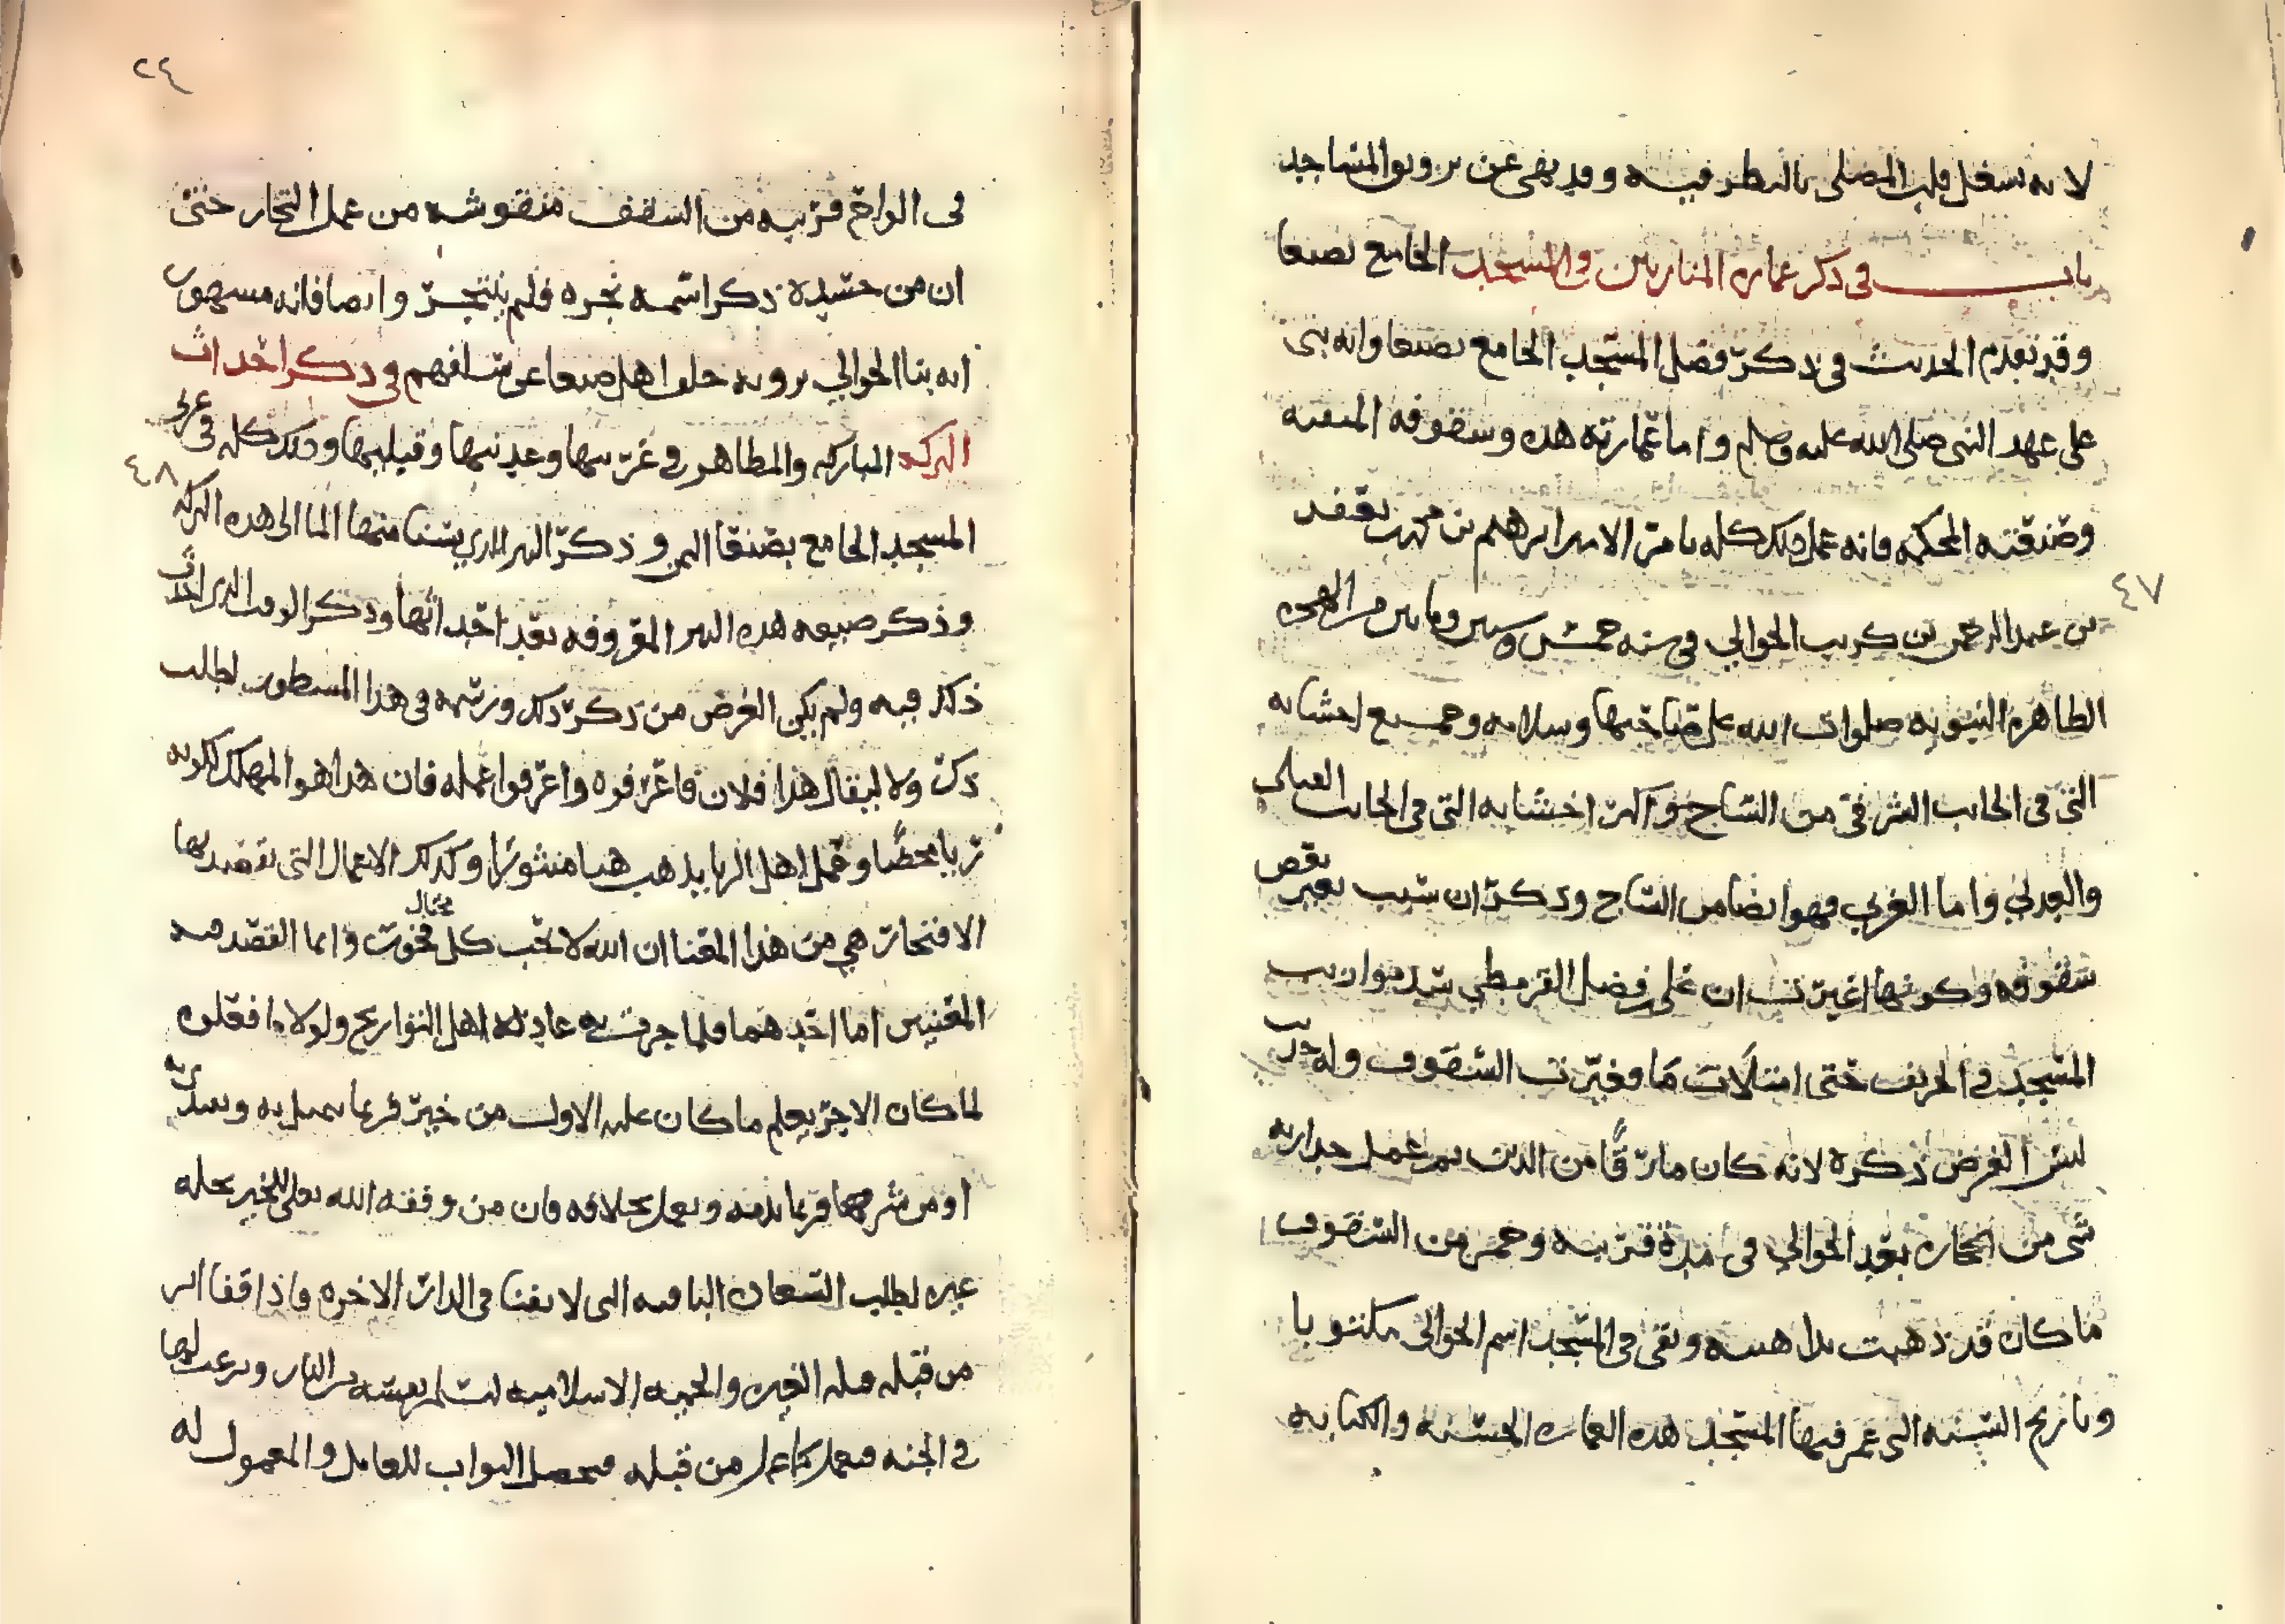 لانه يشغل قلب المصلي بالنظر فيه وقد نهى عن تزويق المساجد
باب في ذكر عمارة المنارتين والمسجد الجامع بصنعا
وقد تقدم الحديث في ذكر فضل المسجد الجامع بصنعا وانه بني
على عهد النبي صلى الله عليه وسلم واما عمارته هذه وسقوفه المتقنه
وصنعته المحكمه فانه عمل ذلك كله بامر الامير ابرهيم بن محمد بن يعفر
بن عبد الرحمن بن كريب الحوالي في سنه خمس وستين ومايتين من الهجره
الطاهره النبويه صلوات الله على صاحبها وسلامه وجميع اخشابه
التي في الجانب الشرقي من الساج واكثر اخشابه التي في الجانب القبلي
والعدني واما الغربي فهو ايضا من الساج وذكر ان سبب تغير بعض
سقوفه وكونها اغبرت ان علي بن فضل القرمطي سد موازيب
المسجد في الخريف حتى امتلأت ما فغيرت السقوف وله
ليس الغرض ذكره لانه كان مارقًا من الدين ثم عمل جدارته
شي من الحجاره بعد الحوالي في مدة قريبه وعمر من السقوف
ما كان قد ذهبت مداهنه وبقى في المسجد اسم الحوالي مكتوبا
وتاريخ السنه التي عمر فيها المسجد هذه العماره الحسنه والكتابه
٤٧
٢٤
في الواح قريبه من السقف منقوشه من عمل النجار حتى
ان من حسده ذكر اسمه نجره فلم ينتجر وايضا فانه مشهور
انه بنا الحوالي يرويه خلف اهل صنعا عن سلفهم في ذكر احداث
البركه المباركه والمطاهر في غربيها وعدنيها وقبليها وذلك كله في غربي
المسجد الجامع بصنعا اليمن وذكر البير الذي يسنا منها الما الى هذه البركه
وذكر صنيعه هذه البير المعروفه بعد احداثها وذكر الوقت الذي احدثت
ذلك فيه ولم يكن الغرض من ذكر ذلك ورسمه في هذا المسطور لطلب
ذكر ولا ليقال هذا فلان فاعرفوه واعرفوا عمله فان هذا هو المهلك لكونه
ريا محضًا وعمل اهل الريا يذهب هبا منثورًا وكذلك الاعمال التي يقصد بها
الافتخار هي من هذا المعنا ان الله لا يحب كل مختال فخور وانما القصد منه
المعنيين اما احدهما فلما جرت به عادة اهل التواريخ ولولا ما فعلوه
لما كان الاخر يعلم ما كان عليه الاول من خير فربما
او من شر فربما يذمه ويعمل بخلافه فان من وفقه الله تعلى للخير
غيره لطلب السعاده الباقيه التي لا تفنا في الدار الاخره فاذا قفا اثر
من قبله الغيره والحميه الاسلاميه ليسلم نفسه من النار ويرغب لها
في الجنه فيعمل كما عمل من قبله فيحصل الثواب للعامل والمعمول له
٤٨